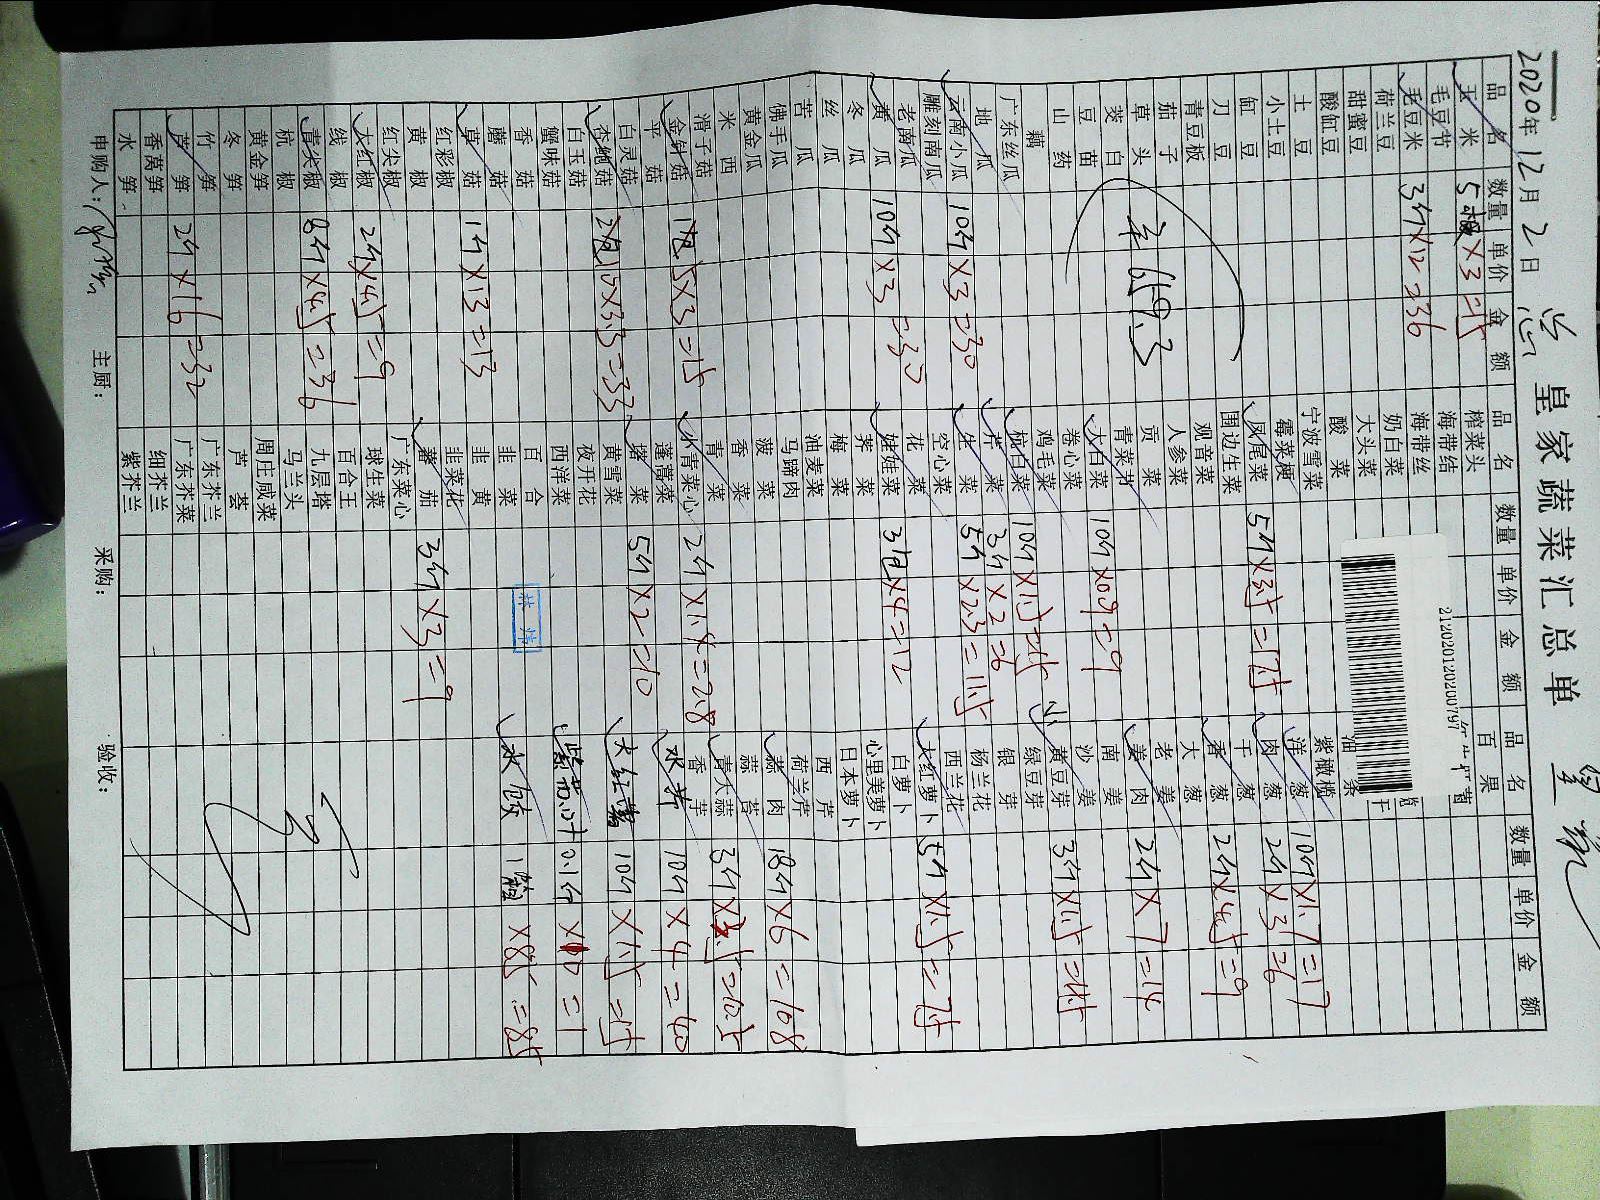 皇家蔬菜汇总单
2020年12月2日
2120201202007971
品名 数量 单价 金额 品名 数量 单价 金额 品名 数量 单价 金额
玉米 5根×3=15 榨菜头
毛豆节 海带结 百果
毛豆米 3斤×12=36 海带丝
荷兰豆 奶白菜
甜蜜豆 大头菜
酸缸豆 酸菜 油条
土豆 宁波雪菜 紫橄榄
小土豆 霉菜梗 洋葱 10斤×1.7=17
缸豆 凤尾菜 5斤×3.5=17.5 肉葱 2斤×3=6
刀豆 围边生菜 干葱
青豆板 观音菜 香葱 2斤×4.5=9
茄子 人参菜 大葱
草头 贡菜 老姜
茭白 青菜节 姜肉 2斤×7=14
豆苗 大白菜 10斤×0.9=9 南姜
山药 卷心菜 沙姜
藕 鸡毛菜 黄豆芽 3斤×1.5=4.5
广东丝瓜 杭白菜 10斤×1.5=15 绿豆芽
地瓜 芹菜 3斤×2=6 银芽
云南小瓜 10斤×3=30 生菜 5斤×2.3=11.5 杨兰花
雕刻南瓜 空心菜 西兰花
老南瓜 花菜 大红萝卜 5斤×1.5=7.5
黄瓜 10斤×3=30 娃娃菜 3包×4=12 白萝卜
冬瓜 荠菜 心里美萝卜
丝瓜 梅菜 日本萝卜
苦瓜 油麦菜 西芹
佛手瓜 马蹄肉 荷兰芹
黄金瓜 菠菜 蒜肉 18斤×6=108
米西 香菜 蒜苔
滑子菇 青菜 青大蒜 3斤×3.5=10.5
金针菇 1包5×3=15 小青菜心 2斤×1.4=2.8 香芹
平菇 蓬蒿菜 水芹 10斤×4=40
白灵菇 塔菜 5斤×2=10
杏鲍菇 2包10×3.3=33 黄雪菜 大红薯 10斤×1.5=15
白玉菇 夜开花
蟹味菇 西洋菜 紫苏叶 0.1斤×10=1
香菇 百合
蘑菇 韭菜 1箱×85=85
草菇 1斤×13=13 韭黄
红彩椒 韭菜花
黄椒 蕃茄 3斤×3=9
红尖椒 广东菜心
大红椒 2斤×4.5=9 球生菜
线椒 百合王
青尖椒 8斤×4.5=36 九层塔
杭椒 马兰头
黄金笋 周庄咸菜
冬笋 芦荟
竹笋 广东芥兰
芦笋 2斤×16=32 广东芥菜
香莴笋 细芥兰
水笋 紫芥兰
619.3
申购人： 主厨： 采购： 验收：